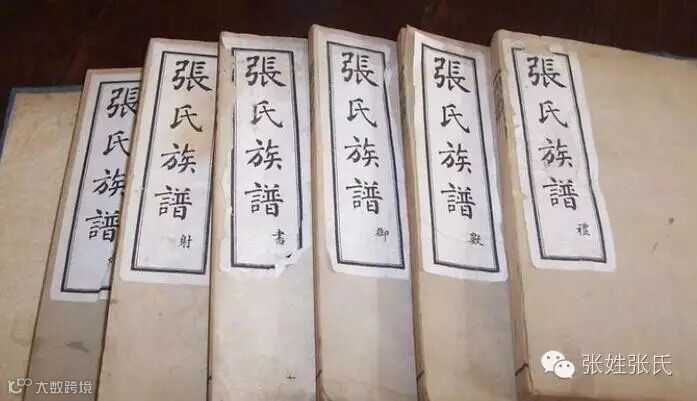 張氏族譜
張氏族譜
射
張氏族譜
書
張氏族譜
御
張氏族譜
數
張氏族譜
禮
张姓张氏
大数跨境